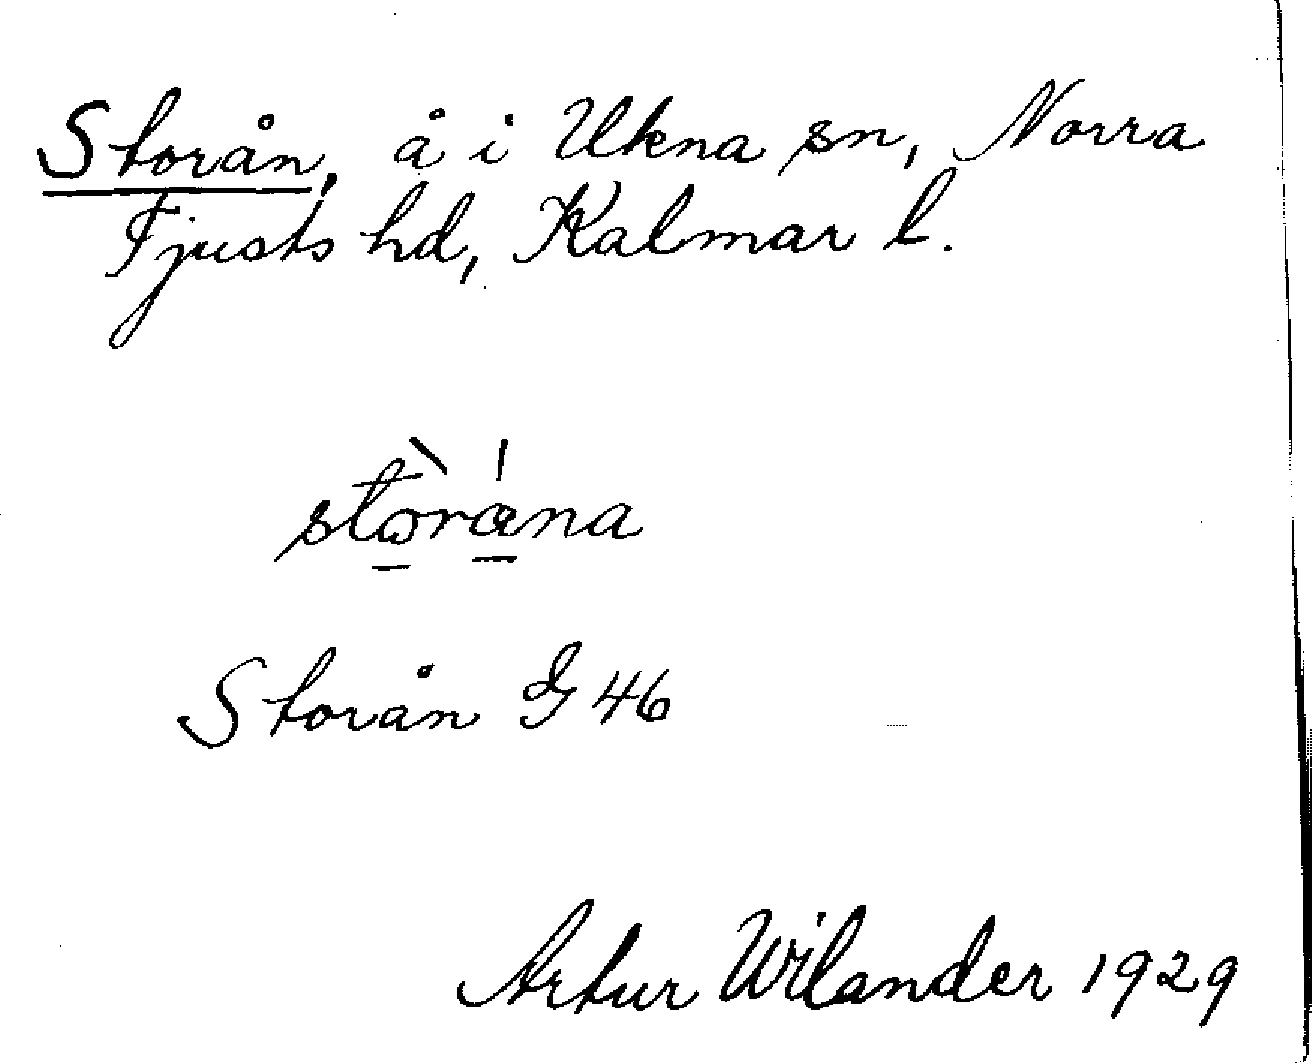 Storån, å i Ukna sn, Norra
Tjusts hd, Kalmar l.
stòrána
Storån G 46
Artur Wilander 1929